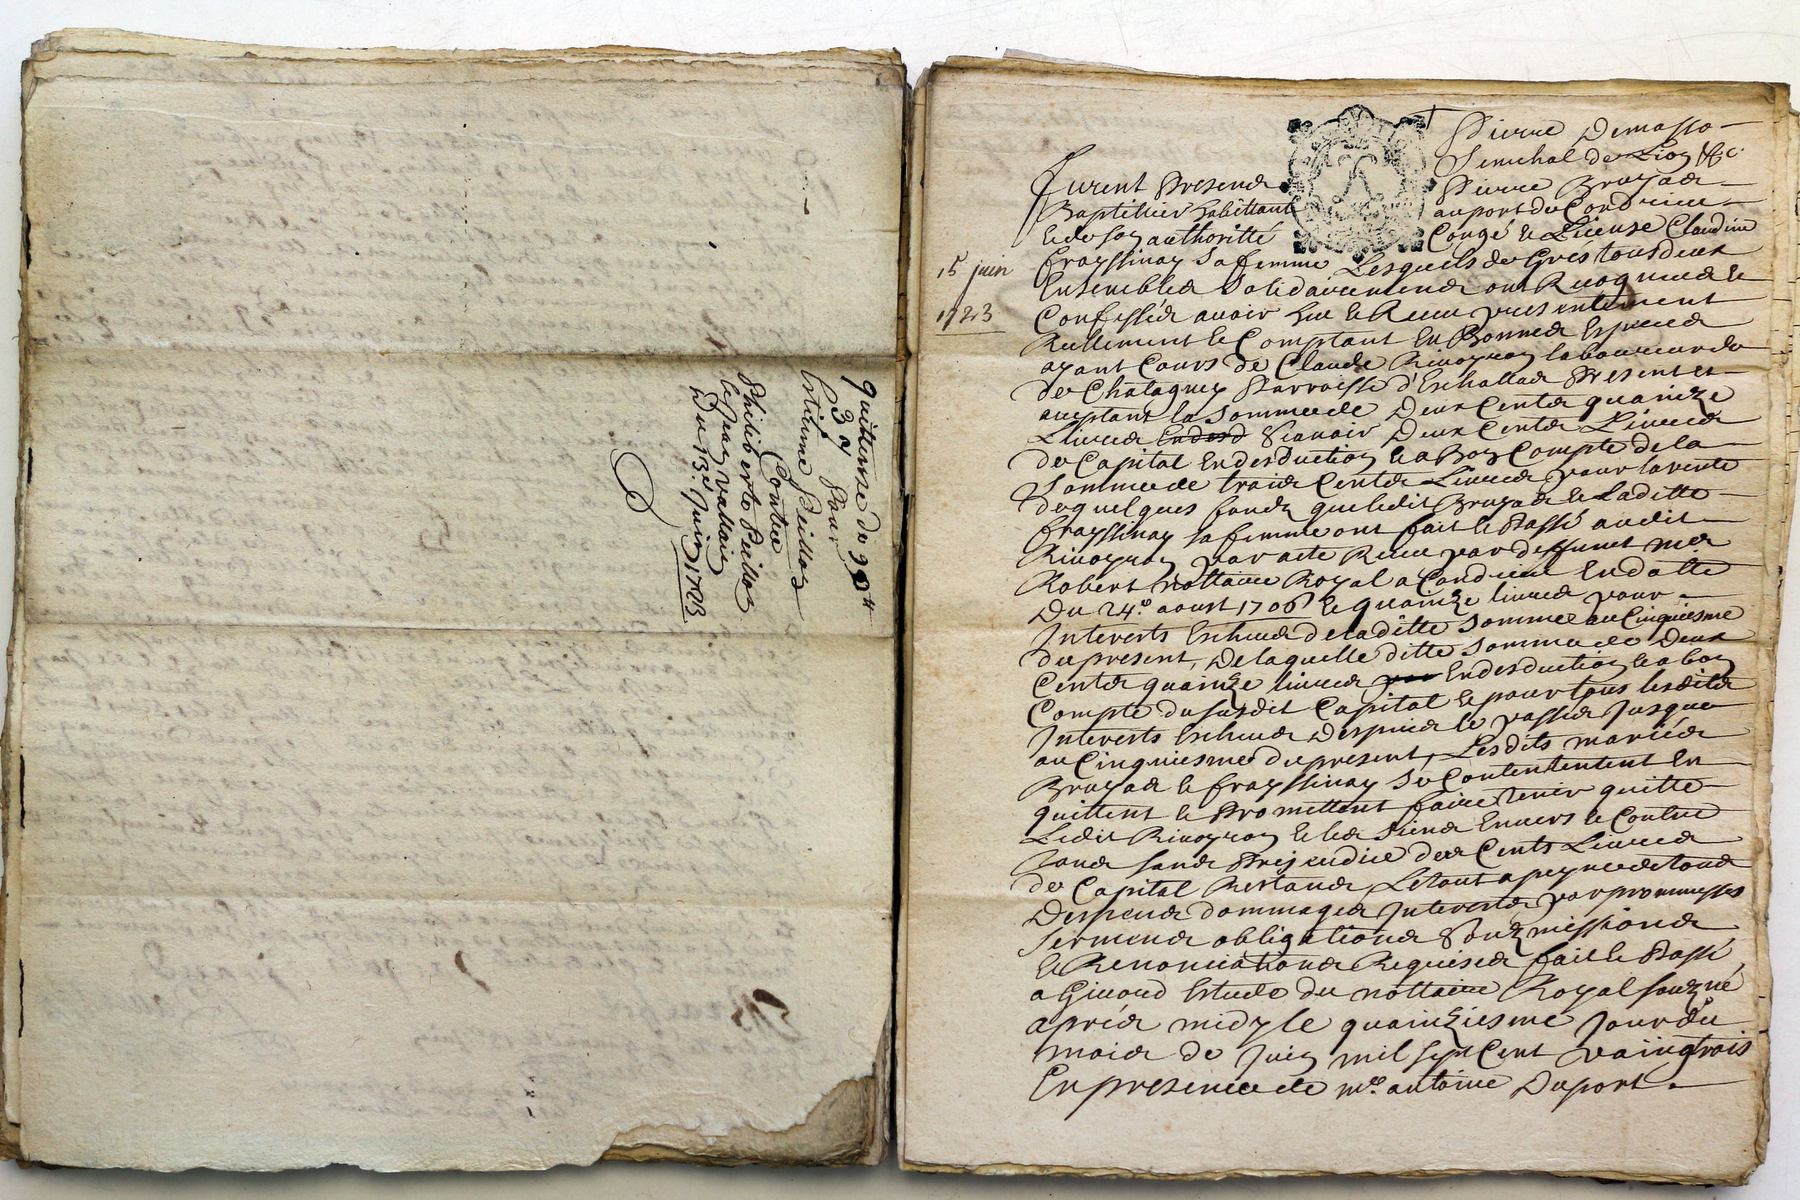 quittense de 99tt
3s pour
Estienne Peillon
Contre
Philiberte Peillon
le jean vallain
Du 13e. Juin 1723
15 juin
1723
Pierre Demasso
Senechal de Lion &c.
furent Presend Pierre Bruyad
Baptihier habittant au port de Condrieu
le de son authoritté Congé le License Claudine
frayssinay sa femme, Lesquels de Grés tous deux
Ensembled solidairemend ont Recogneud le
Confessed avoir heu le Receu presentement
Reellement le Comptant En Bonned Especed
ayant Cours de Claude Rivoyron laboureur du
de Chatagney Parroisse d'Eschallad Present et
aceptant la Somme de Deux Centd quainze
Livred Sçavoir Deux Centd Livred
de Capital En desduction le a Bon Compte de la
Somme de traid Centd Livred pour la vente
de quelques fondz que ledit Bruyad le Laditte
frayssinay sa femme ont fait le Passé audit
Rivoyron par acte Receu par deffunct Med
Robert Nottaire Royal a Condrieu En datte
Du 24e. aoust 1706 le quainze livred pour
Interests Escheud de laditte Somme au Cinquiesme
du present, De laquelle ditte Somme de Deux
Centd quainze livred En desduction le a bon
Compte du susdit Capital le pour tous lesditd
Interests Escheud Despuid le passed Jusque
au Cinquiesme du present, Lesdits mariéd
Bruyad le frayssinay se Contententent En
quittent le Promettent faire tenir quitte
Ledit Rivoyron le led Siend Envers le Contre
toud sand Prejudice ded Cents Livred
de Capital Restand, Le tout a peyne de toud
Despend dommaged Interestd par promesses
Sermend obligationd Soudzmissiond
le Renonciationd Requised fait le Passé
a Givord Estude du nottaire Royal souzné
apréd midy le quainziesme Jour du
moid de Juin mil sept Cent vaingtrois
En presence de me. antoine Duport